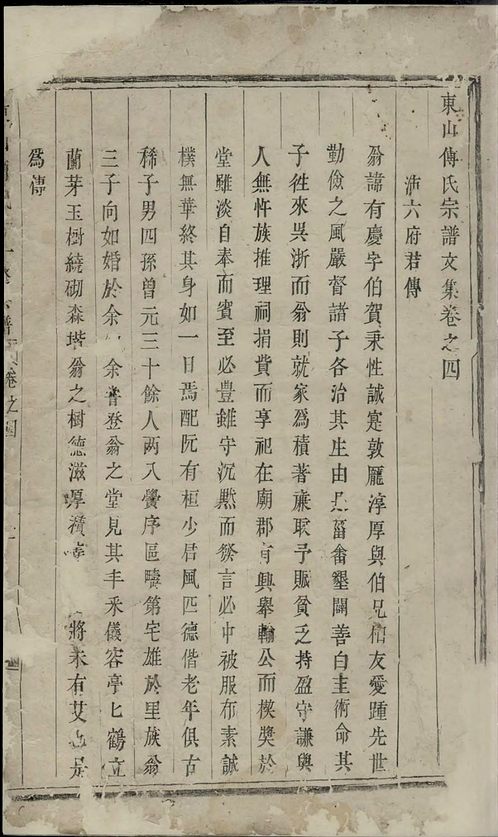 東山傅氏宗譜文集卷之四
沛六府君傳
翁諱有慶字伯賀秉性誠寔敦龐淳厚與伯兄友愛踵先世
勤儉之風嚴督諸子各治其生由是菑畬墾闢善白圭術命其
子徃來吳浙而翁則就家爲積著亷取予賑貧乏持盈守謙與
人無忤族推理祠捐費而享祀在廟郡有興舉輸公而模奬於
堂雖淡自奉而賓至必豐雖守沉黙而發言必中被服布素誠
樸無華終其身如一日焉配阮有桓少君風匹德偕老年俱古
稀子男四孫曾元三十餘人両入黌序區疇第宅雄於里族翁
三子向如婚於余余嘗登翁之堂見其丰采儀容亭匕鶴立
蘭芽玉樹繞砌森堦翁之樹德滋厚積將未有艾也是
爲傳
卷之四